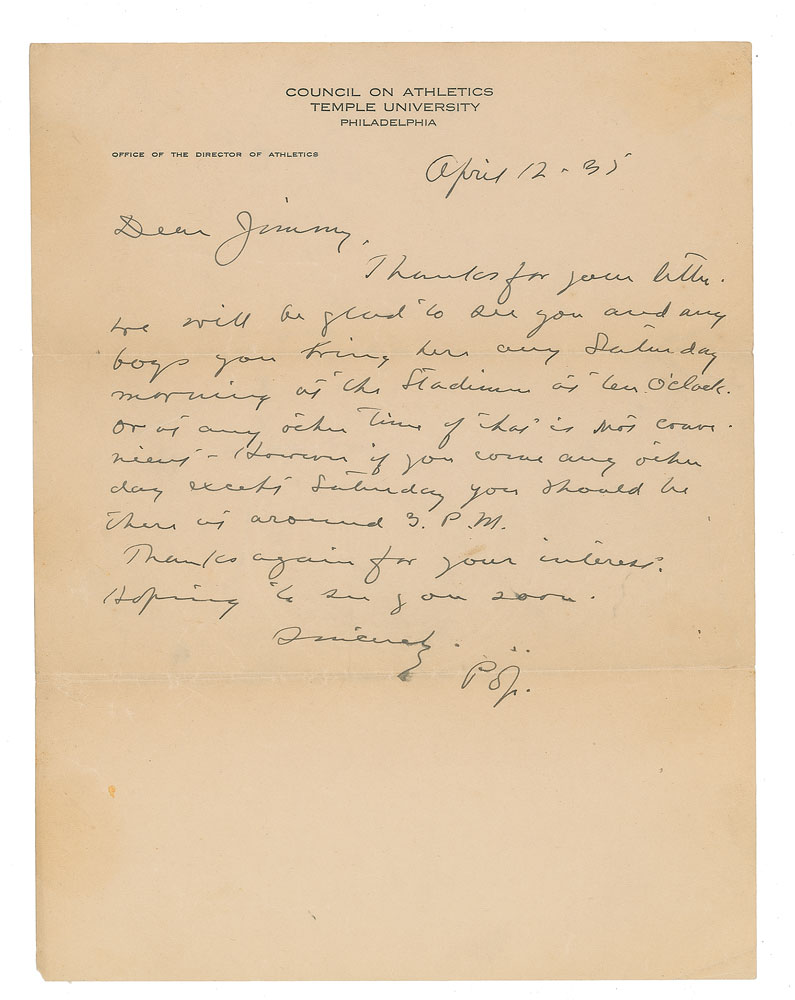 COUNCIL ON ATHLETICS
TEMPLE UNIVERSITY
PHILADELPHIA
OFFICE OF THE DIRECTOR OF ATHLETICS
April 12 - 35
Dear Jimmy,
Thanks for your letter.
we will be glad to see you and any
boys you bring here any Saturday
morning at the Stadium at ten O'clock.
Or at any other time if that is not conve-
nient - However if you come any other
day except Saturday you should be
there at around 3. P.M.
Thanks again for your interest.
Hoping to see you soon.
Sincerely.
"Pop".